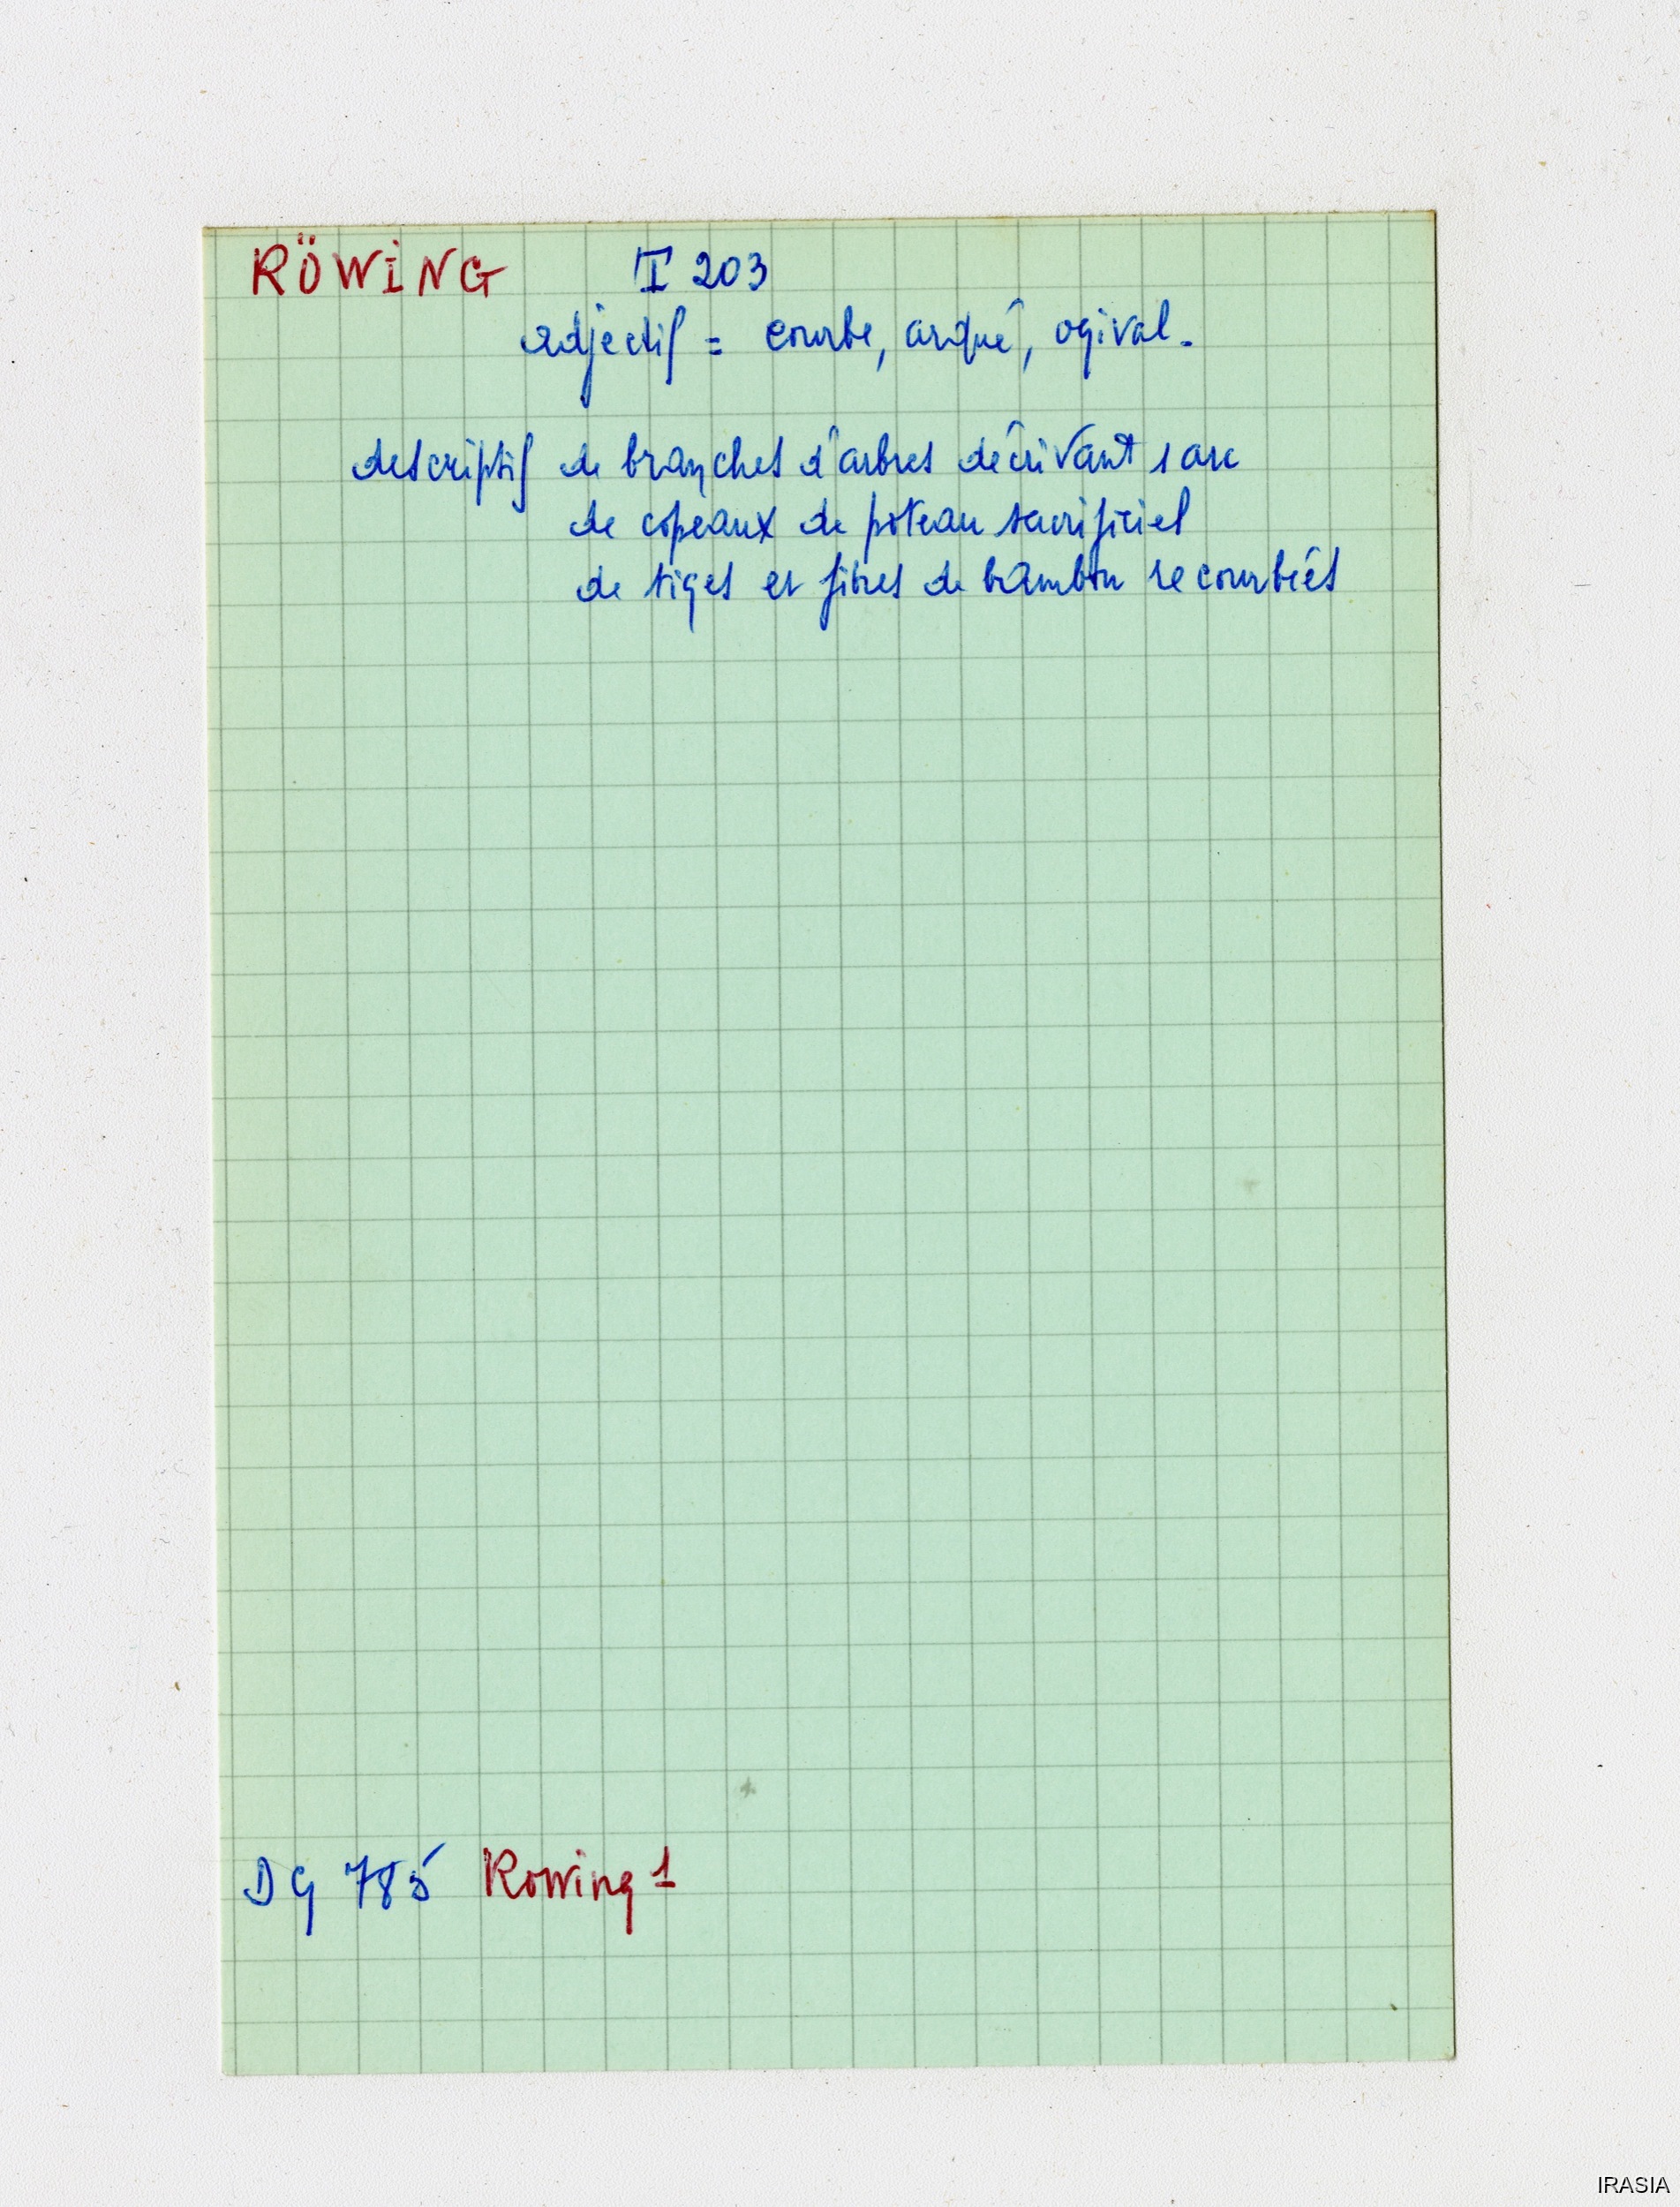 RÖWING I 203
adjectif = courbe, arqué, ogival.
descriptif de branches d'arbres décrivant 1 arc
de copeaux de poteau sacrificiel
de tiges et fibres de bambou recourbées
DG 785 Rowing 1
IRASIA